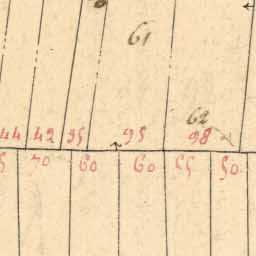 61
62
44 42 35 95 98
70 60 60 55 50